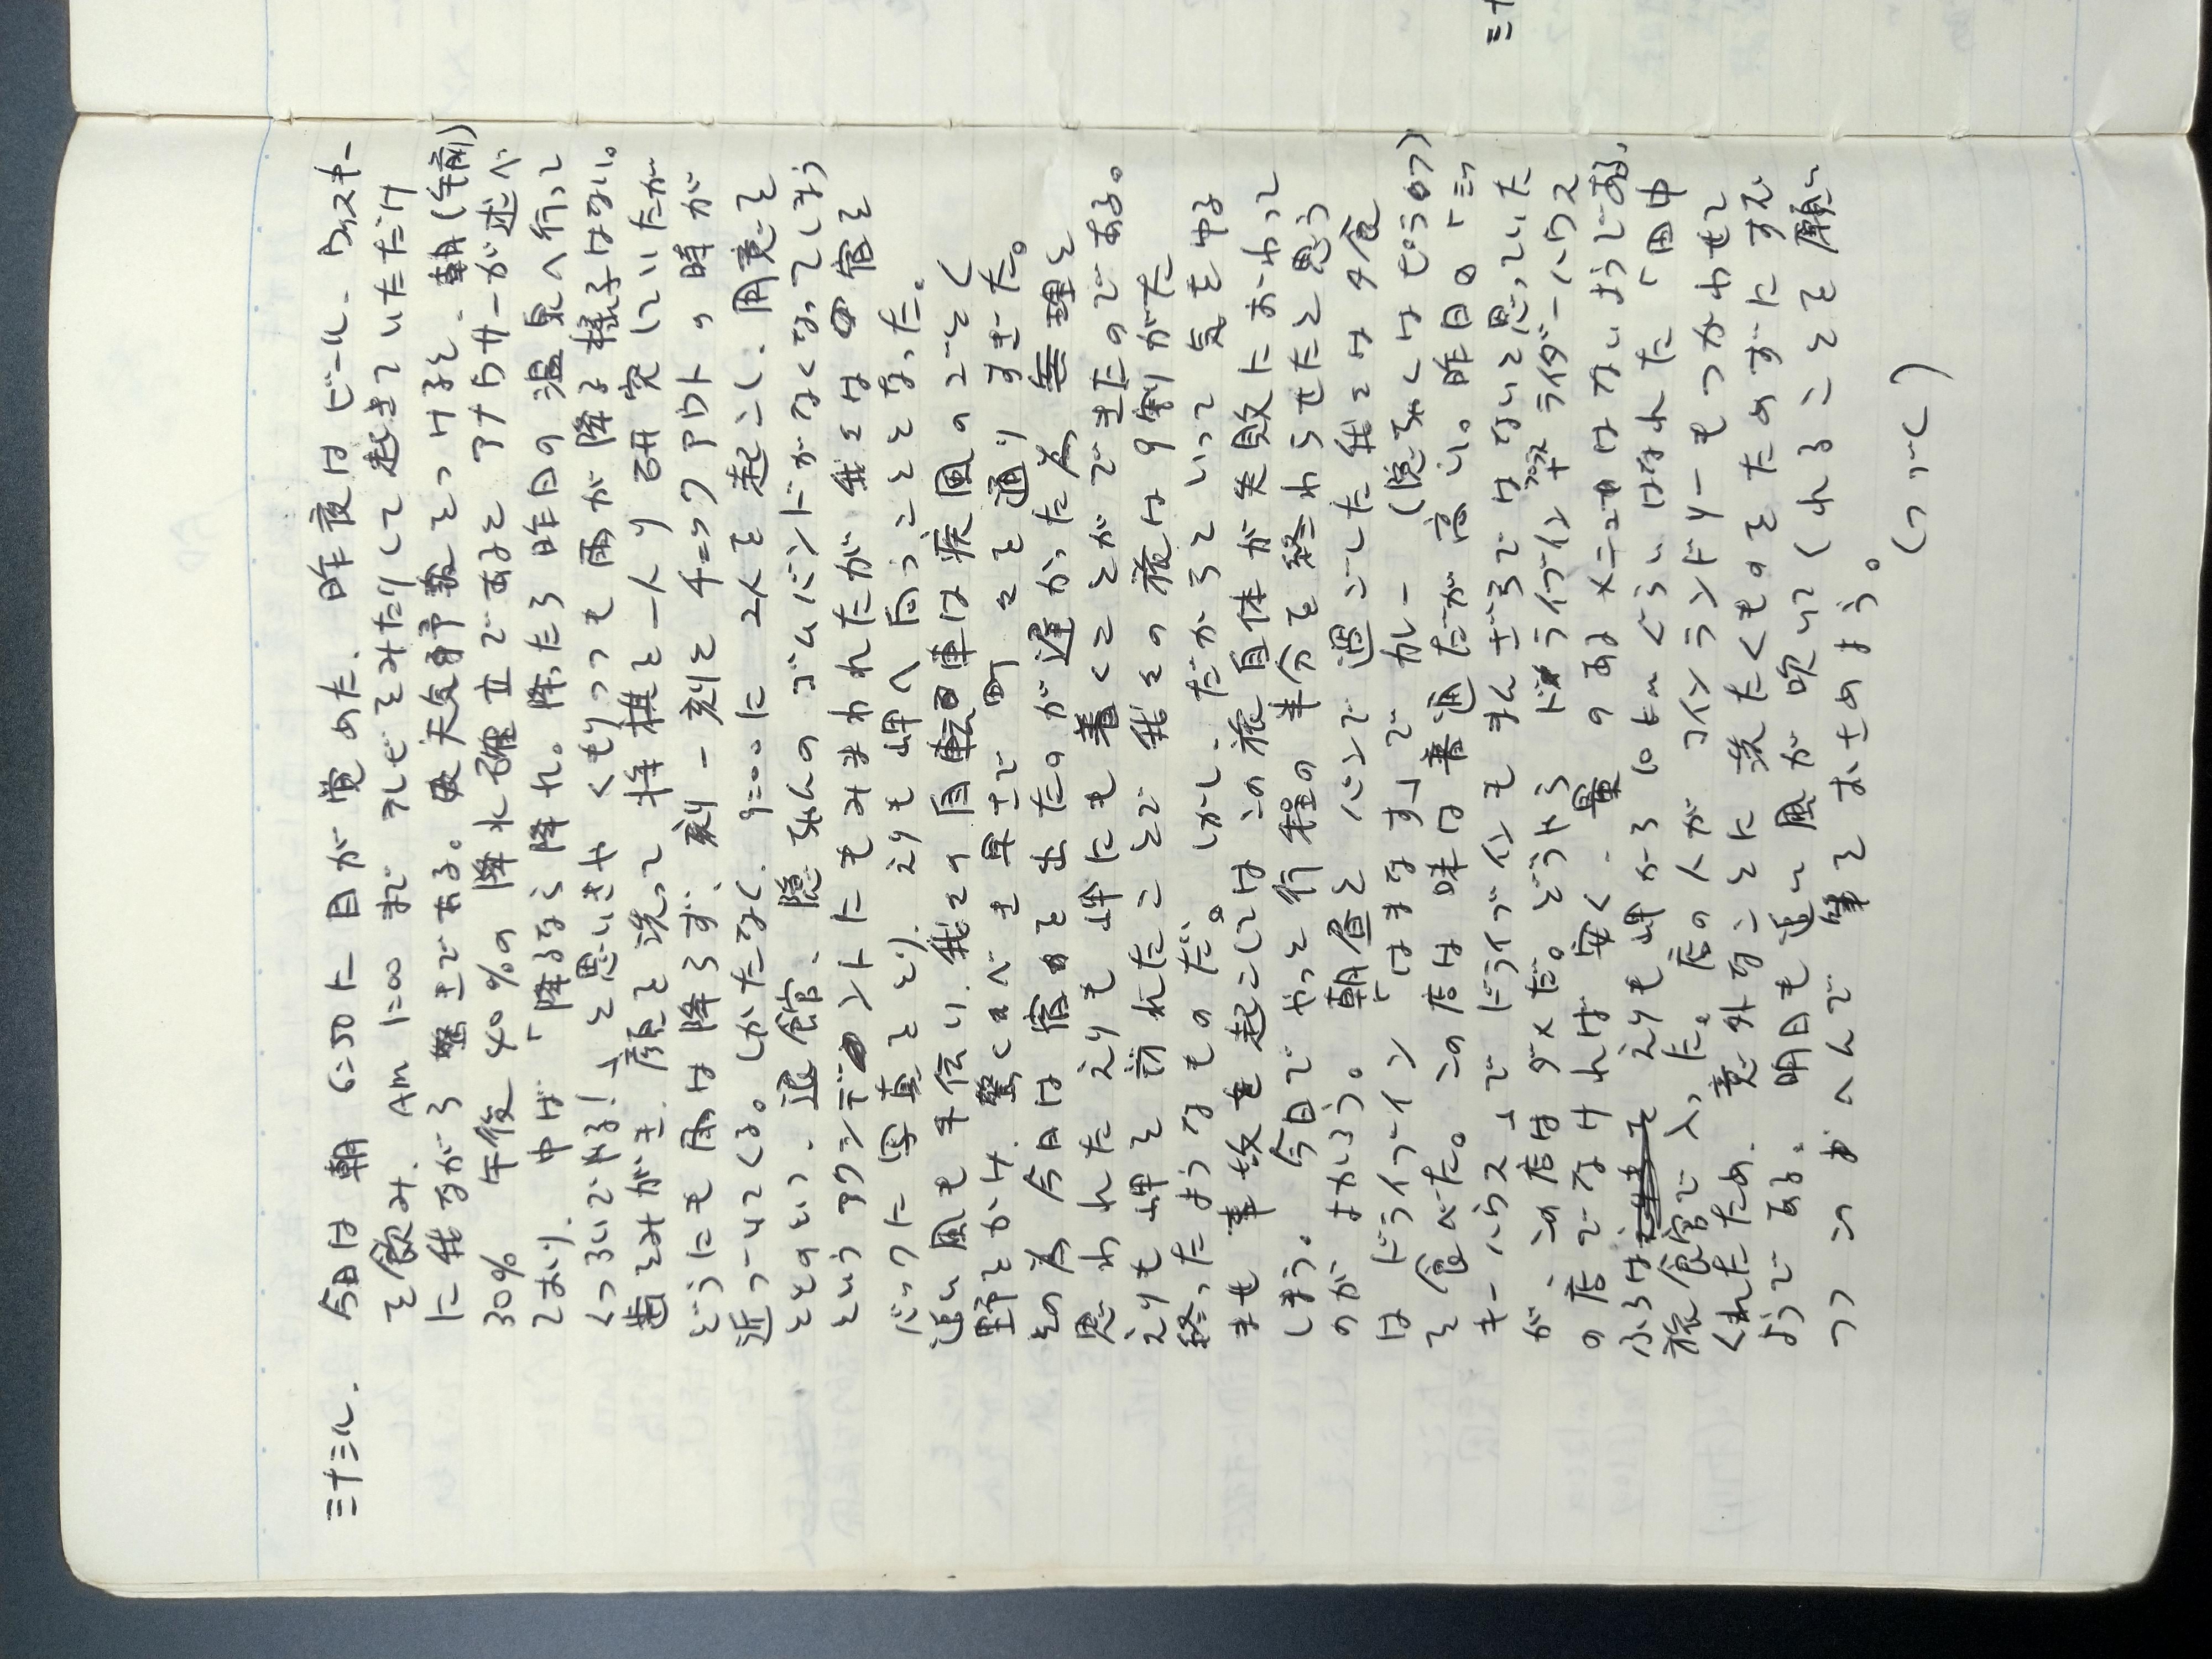 ミナミル. 今日は朝 6:50に目が覚めた. 昨夜はビール. ウィスキー
を飲み. AM 1:00 まで テレビをみたりして起きていただけ
に我ながら驚きである。天気予報をつけると. 朝(午前)
30% 午後40%の降水確立であると アナウサーが述べ
ており. 中ば「降るなら降れ。降ったら昨日の温泉へ行って
くつろいでやる!」と思いきや くもりつつも雨が降る様子はない。
歯をみがき. 顔を洗って 将棋を一人り研究していたが
どうにも雨は降らず、刻一刻と チェックアウトの時が
近づいてくる。しかたなく. 9:00に 2人を起こし. 用意を
ととのいつ. 退館、隠
というアクシデントにもみまわれたが 我々は宿を
バックに写真をとり. えりも岬へ向うこととなった。
追い風も手伝い. 我々の自転車は疾風のごとく
野をかけ. 驚くまべき早さで 町々を通りすぎた。
その為 今日は宿を出たのが遅かった為 無理と
思われた えりも岬にも着くことができたのである。
えりも岬を訪れたことで 我々の旅は9割がた
終ったようなものだ。しかし. だからといって 気をゆる
ませ 事故を起こしては この旅自体が失敗におわって
しまう。今日で やっと行程の半分を終わらせたと思う
のが よかろう。朝昼と パンで過ごした我々は夕食
は ドライブイン「はまなす」で カレー
を食べた。この店は味は普通だが高い。昨日の「ミッ
キーハウス」で ドライブインも まんざらではないと思っていた
が、この店はダメだ。どうやら ドライブイン プラス ライダーハウス
の店でなければ 安く. 量のあるメニューはないようである.
ふろは えりも岬から 10kmぐらいはなれた「田中
旅館で入った。店の人が コインランドリーもつかわせて
くれたため. 意外なことに 洗たくものをためずにすむ
ようである. 明日も追い風が吹いてくれることを願い
つつ このへんで 筆をおさめよう。
(つづく)